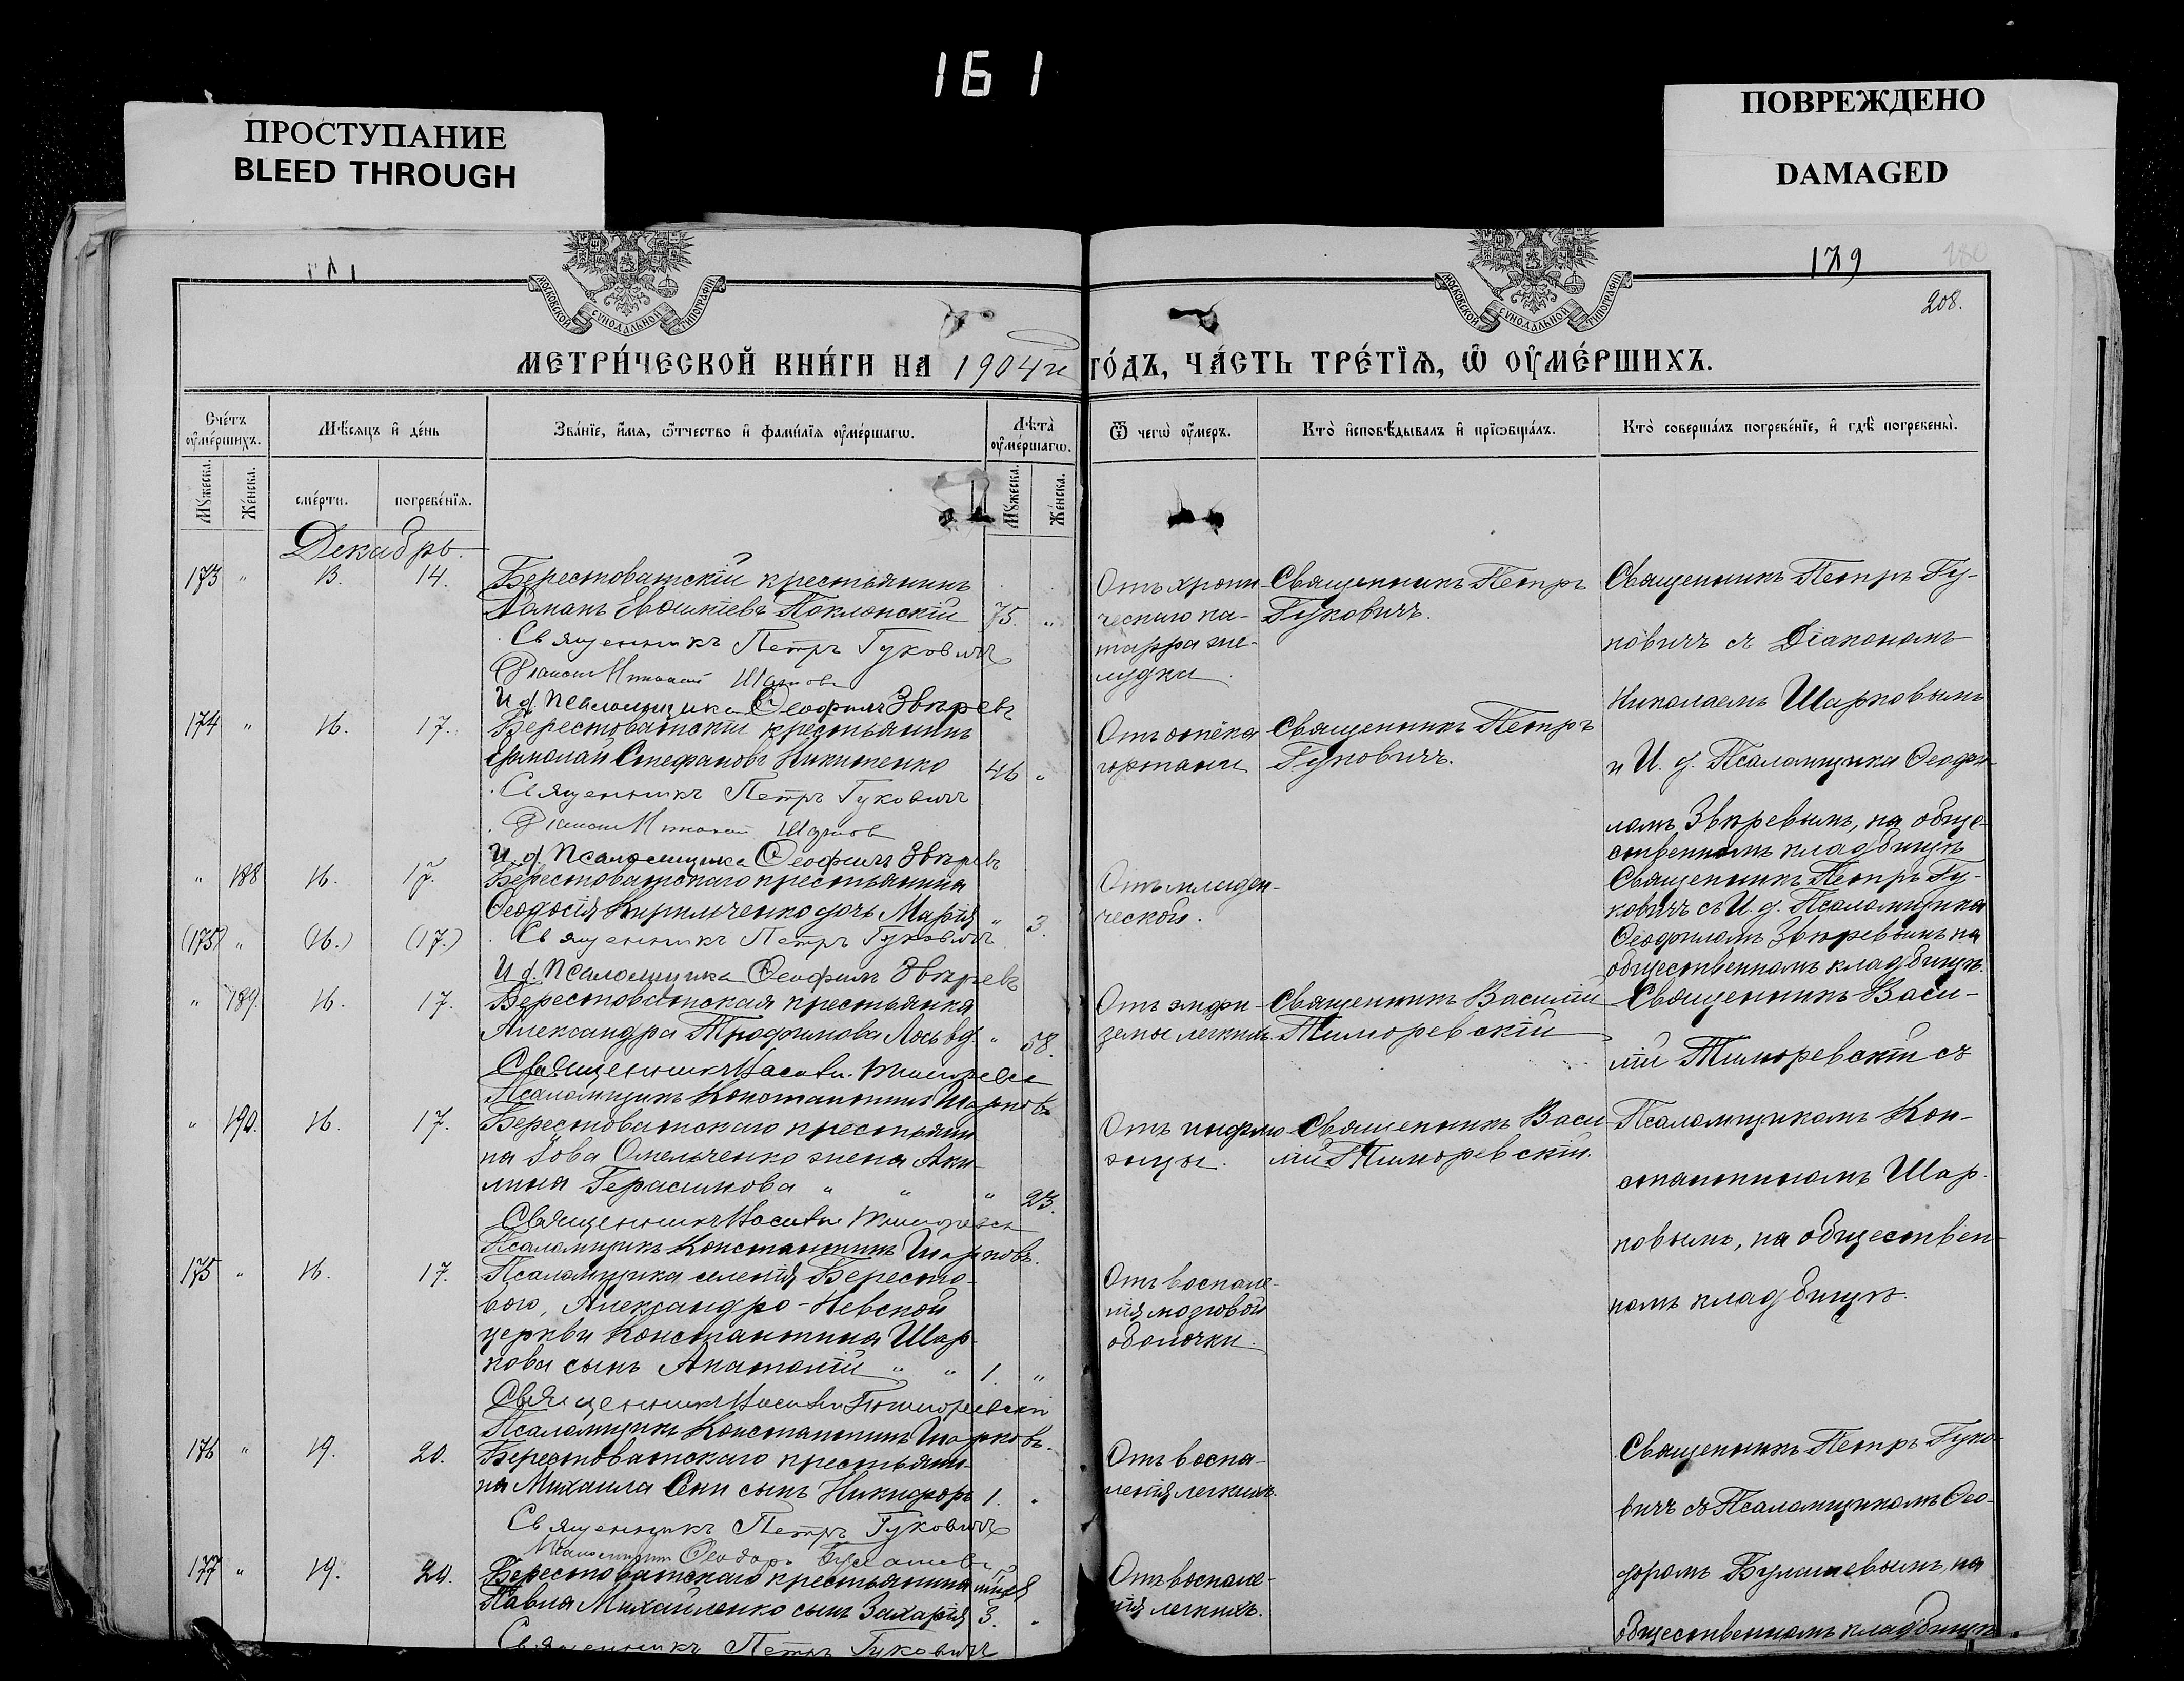 161
ПРОСТУПАНИЕ
BLEED THROUGH
ПОВРЕЖДЕНО
DAMAGED
179
180
208.
МОСКОВСКОЙ СѴНОДАЛЬНОЙ ТИПОГРАФІИ
МОСКОВСКОЙ СѴНОДАЛЬНОЙ ТИПОГРАФІИ
МЕТРИ́ЧЕСКОЙ КНИ́ГИ НА 1904й ГО́ДЪ, ЧА́СТЬ ТРЕ́ТЇѦ, Ѡ҆ ОУ҆МЕ́РШИХЪ.
Сче́тъ оу҆ме́ршихъ.
Мѣ́сѧцъ и҆ де́нь
Зва́нїе, и҆́мѧ, ѻ҆́тчество и҆ фами́лїѧ оу҆ме́ршагѡ.
Лѣта̀ оу҆ме́ршагѡ.
Ѿ чегѡ̀ оу҆́меръ.
Кто̀ и҆сповѣ́дывалъ и҆ прїѡбща́лъ.
Кто̀ соверша́лъ погребе́нїе, и҆ гдѣ̀ погребены̀.
Мꙋ́жеска.
Же́нска.
сме́рти.
погребе́нїѧ.
Мꙋ́жеска.
Же́нска.
Декабрь.
173 " 13. 14. Берестоватскій крестьянинъ
Романъ Евѳиміевъ Поклонскій 75. "
Священникъ Петръ Гуковичъ
Діаконъ Николай Шарковъ
И. д. псаломщика Ѳеофилъ Звѣревъ
Отъ хрони-
ческаго ка-
тарра же-
лудка.
Священникъ Петръ
Гуковичъ.
Священникъ Петръ Гу-
ковичъ съ Діакономъ
Николаемъ Шарковымъ
и И. д. Псаломщика Ѳеофи-
ломъ Звѣревымъ, на обще-
ственномъ кладбищѣ
174 " 16. 17. Берестоватскій крестьянинъ
Ермолай Стефановъ Никитенко 46 "
Священникъ Петръ Гуковичъ
Діаконъ Николай Шарков
И. д. псаломщика Ѳеофилъ Звѣревъ
Отъ отёка
гортани
Священникъ Петръ
Гуковичъ.
" 188 16. 17. Берестоватскаго крестьянина
Ѳеодосія Кирильченко дочь Марія " 3.
(175) " (16.) (17.) Священникъ Петръ Гуковичъ
И. д. псаломщика Ѳеофилъ Звѣревъ
Отъ младен-
ческой.
Священникъ Петръ Гу-
ковичъ съ И. д. Псаломщика
Ѳеофиломъ Звѣревымъ на
общественномъ кладбищѣ.
" 189. 16. 17. Берестоватская крестьянка
Александра Трофимова Лось вд. " 58.
Священникъ Василій Тиморевскій
Псаломщикъ Константинъ Шарковъ
Отъ эмфи-
земы легкихъ.
Священникъ Василій
Тиморевскій
Священникъ Васи-
лій Тиморевскій съ
Псаломщикомъ Кон-
стантиномъ Шар-
ковымъ, на обществен-
номъ кладбищѣ.
" 190. 16. 17. Берестоватскаго крестьяни-
на Іова Омельченко жена Аки-
лина Герасимова " " " 23.
Священникъ Василій Тиморевскій
Псаломщикъ Константинъ Шарковъ.
Отъ инфлю-
энцы.
Священникъ Васи-
лій Тиморевскій.
175 " 16. 17. Псаломщика селенія Бересто-
вого, Александро-Невской
церкви Константина Шар-
кова сынъ Анатолій " " 1. "
Священникъ Василій Тиморевскій
Псаломщикъ Константинъ Шарковъ.
Отъ воспале-
нія мозговой
оболочки.
176 " 19. 20. Берестоватскаго крестьяни-
на Михаила Сени сынъ Никифоръ 1. "
Священникъ Петръ Гуковичъ
Псаломщикъ Ѳеодоръ Булашевъ
Отъ воспа-
ленія легкихъ.
Священникъ Петръ Гуко-
вичъ съ Псаломщикомъ Ѳео-
доромъ Булашевымъ, на
общественномъ кладбищѣ.
177 " 19. 20. Берестоватскаго крестьянина
Павла Михайленко сынъ Захарія 3. "
Священникъ Петръ Гуковичъ
Отъ воспале-
нія легкихъ.